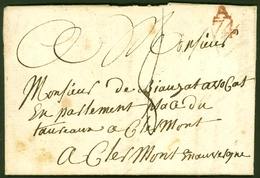 A
7
A Monsieur
Monsieur de Biauzat avocat
En parlement place du
taureaux a Clermont
a Clermont En auvergne